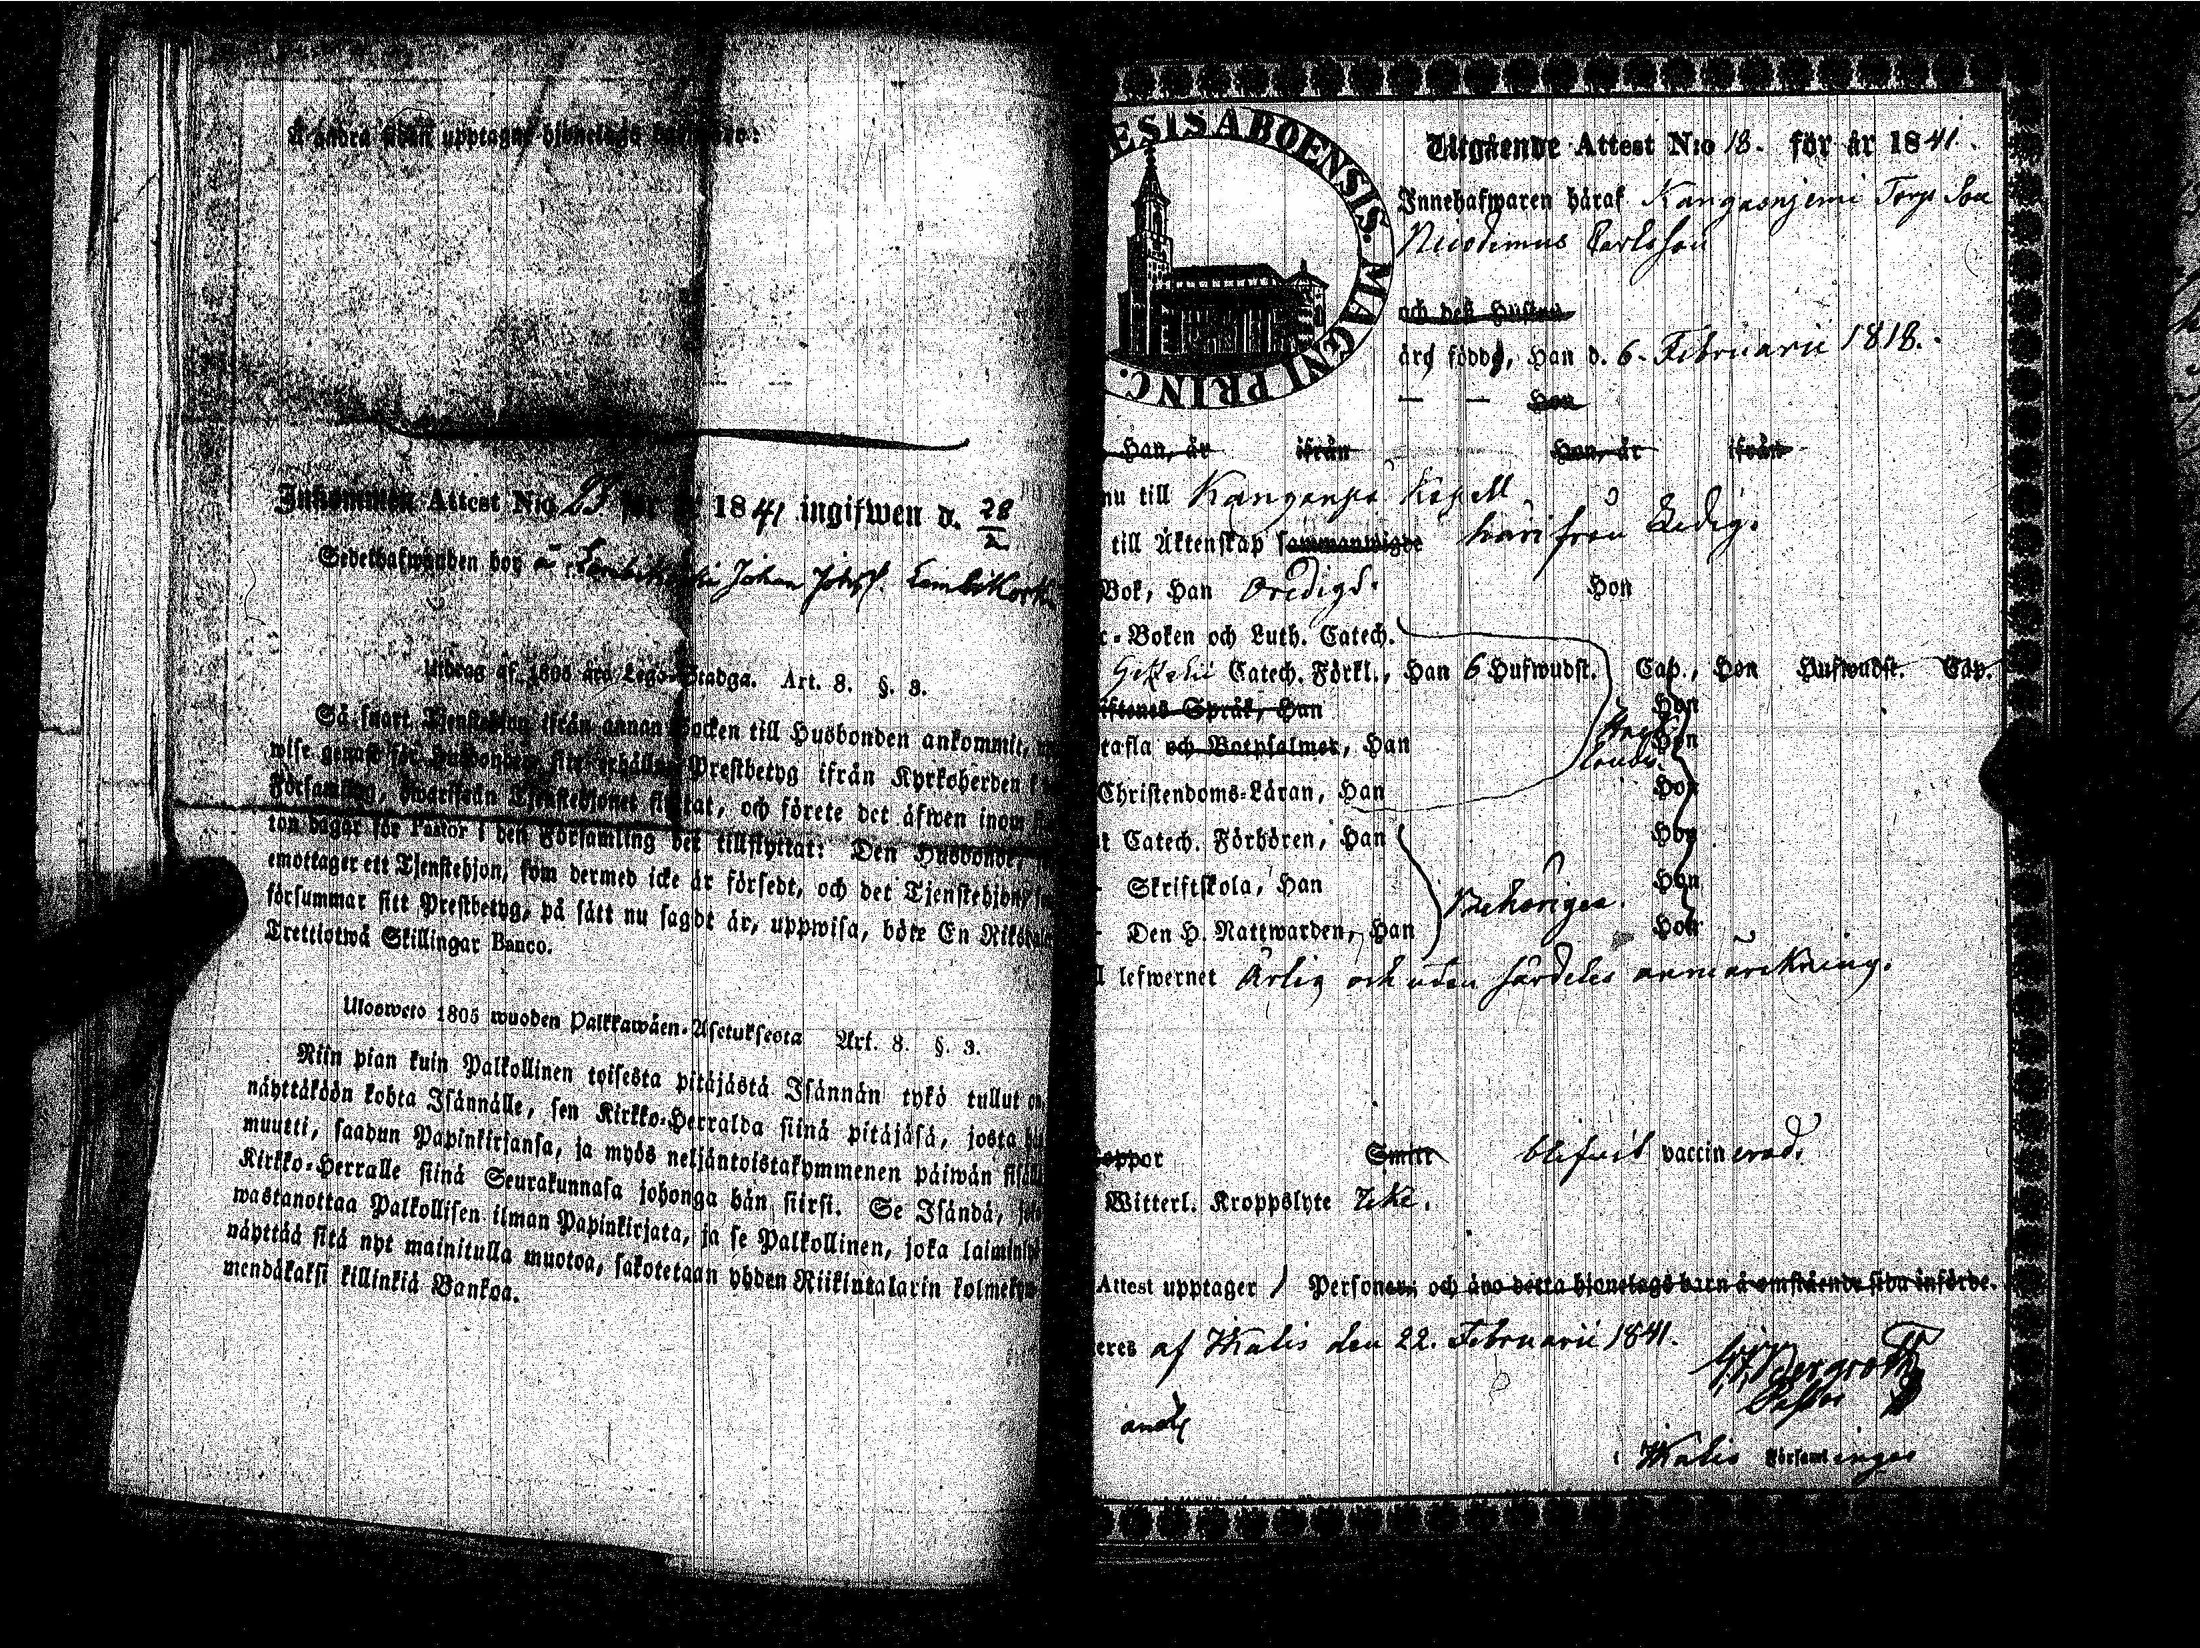 Å andra sidan upptagne hjonelags
Inkommen Attest N:o 23 för år 1841 ingifwen d. 28/2
Sedelhafwanden bor å Johan Johss.
Utdrag af 1805 års Lego-Stadga. Art. 8. §. 3.
Så snart Tjenstehjon ifrån annan Socken till Husbonden ankommit,
wise genast för Husbonden sitt erhållna Prestbetyg ifrån Kyrkoherden
Församling, hwarifrån Tjenstehjonet flyttat, och förete det äfwen inom
ton dagar för Pastor i den Församling det tillflyttat: Den Husbonde,
emottager ett Tjenstehjon, som dermed icke är försedt, och det Tjenstehjon,
försummar sitt Prestbetyg, på sätt nu sagdt är, uppwisa, böte En Riksdaler
Trettiotwå Skillingar Banco.
Uloswеto 1805 wuoden Palkkawäen-Asetuksesta Art. 8. §. 3.
Niin pian kuin Palkollinen toisesta pitäjästä Isännän tykö tullut on,
näyttäköön kohta Isännälle, sen Kirkko-Herralda siinä pitäjäsä, josta
muutti, saadun Papinkirjansa, ja myös neljäntoistakymmenen päiwän sisällä
Kirkko-Herralle siinä Seurakunnasa johonga hän siirsi. Se Isändä,
wastanottaa Palkollisen ilman Papinkirjata, ja se Palkollinen, joka
näyttää sitä nyt mainitulla muotoa, sakotetaan yhden Riikintalarin
mendäkaksi killinkiä Bankoa.
ESIS ABOENSIS. MAGNI PRINC.
Utgående Attest N:o 18. för år 1841.
Innehafwaren häraf Kangasnjemi Torps Son
Nicodimus Carlsson
och deß Hustru
äro födde, Han d. 6. Februarii 1818.
— — Hon
Han, är ifrån Hon, är ifrån
nu till Kangonpä Kapell
till Äktenskap sammanwigde härifrån Ledig.
Bok, Han Oredigt. Hon
c-Boken och Luth. Catech.
Catech. Förkl., Han 6 Hufwudst. Cap., Hon Hufwudst. Cap.
iftenes Språk, Han Hon
tafla och Botpsalmer, Han Hon
Christendoms-Läran, Han Hon
t Catech. Förhören, Han Hon
Skriftskola, Han Behörigen. Hon
Den H. Nattwarden, Han Hon
l lefwernet Ärlig och utan särdeles anmärckning.
oppor Smitt blifvit vaccinerad.
Witterl. Kroppslyte Icke.
Attest upptager 1 Personer; och äro detta hjonelags barn å omstående sida införde.
eres af Wialis den 22. Februarii 1841.
Pastor
i Wialis Församlinges